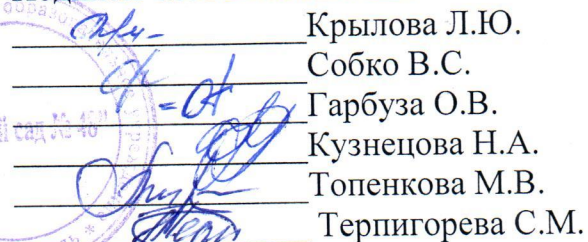 Крылова Л.Ю.
Собко В.С.
Гарбуза О.В.
Кузнецова Н.А.
Топенкова М.В.
Терпигорева С.М.
сад № 46"